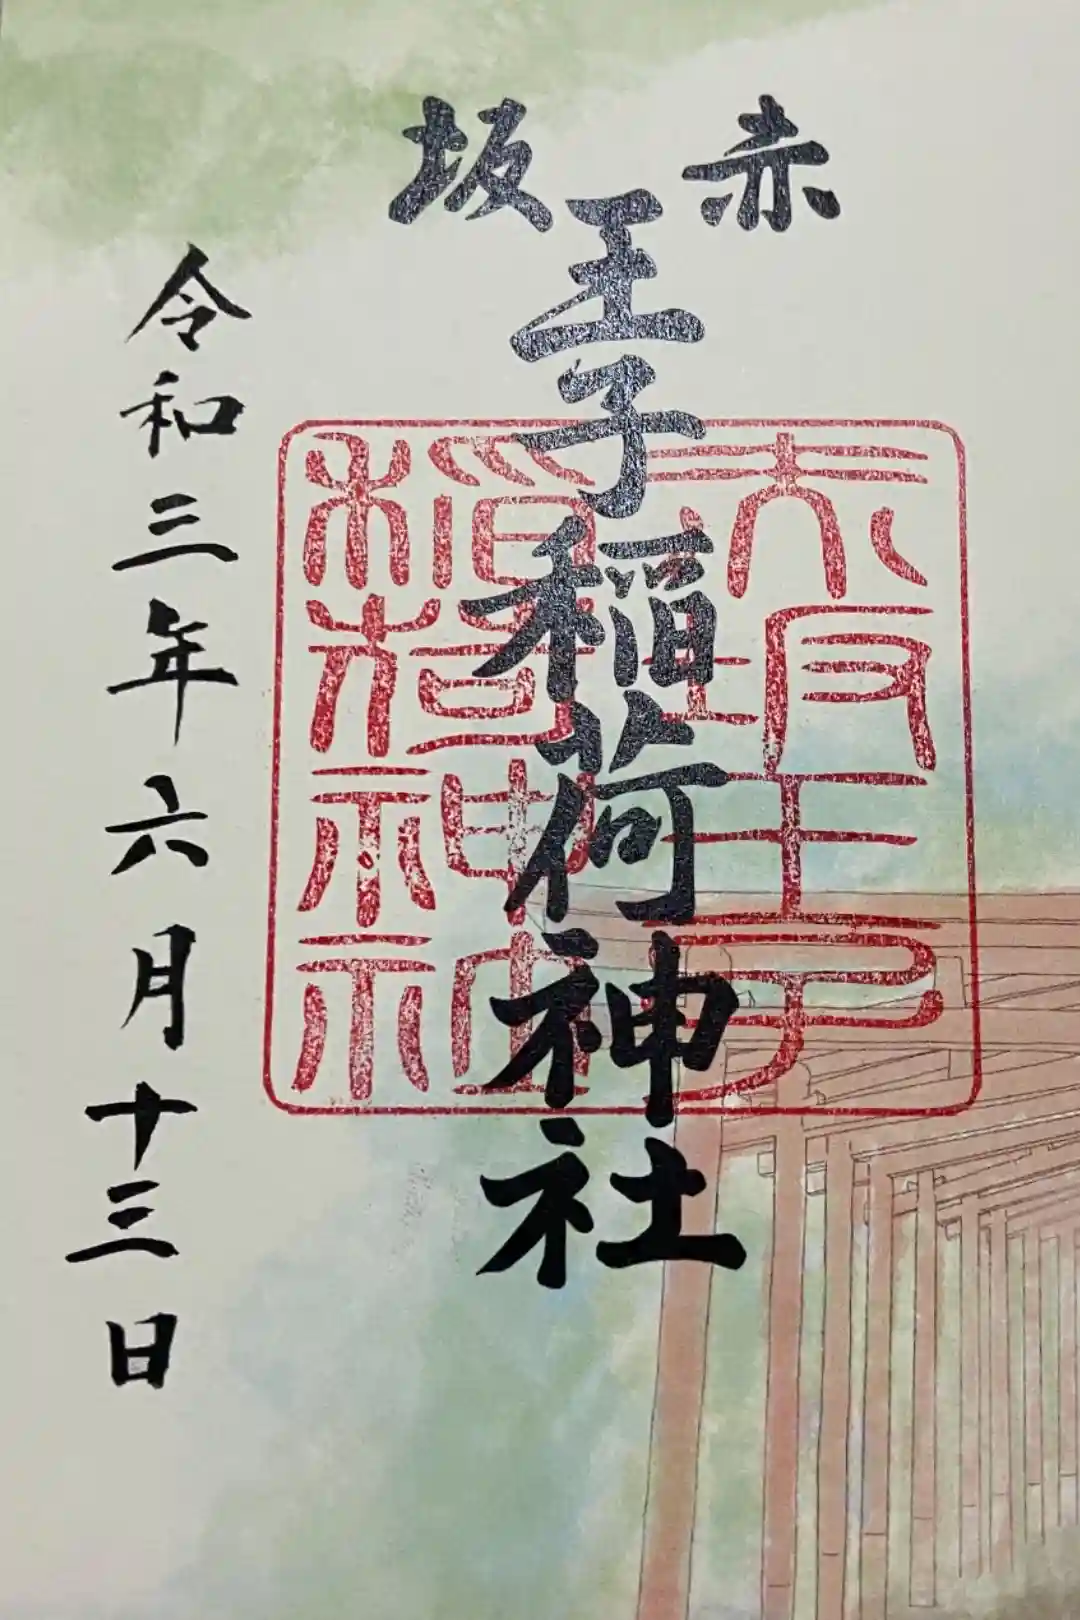 赤坂
王子稲荷神社
大坂王子
稲荷神社
令和三年六月十三日